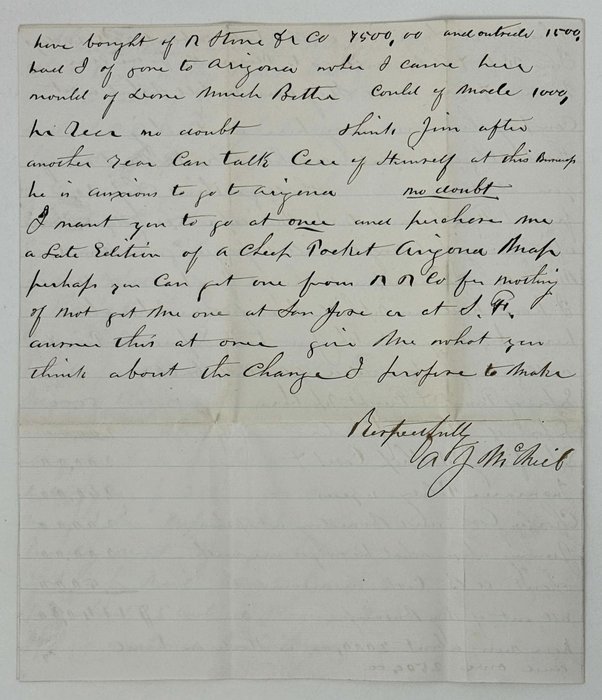 have bought of N Stine & Co 4500,00 and outside 1500,
had I of gone to Arizona when I came here
would of Done Much Better Could of Made 1000,
no doubt think Jim after
another Year Can talk Cere of Himself at this Business
he is anxious to go to arizona no doubt
I want you to go at once and perchase me
a Late Edition of a Cheep Pocket Arizona Map
perhaps you Can get one from R R Co for nothing
if not get Me one at San Jose or at S. F.
answer this at once give Me what you
think about the Change I propose to Make
Respectfully
A J McNeil